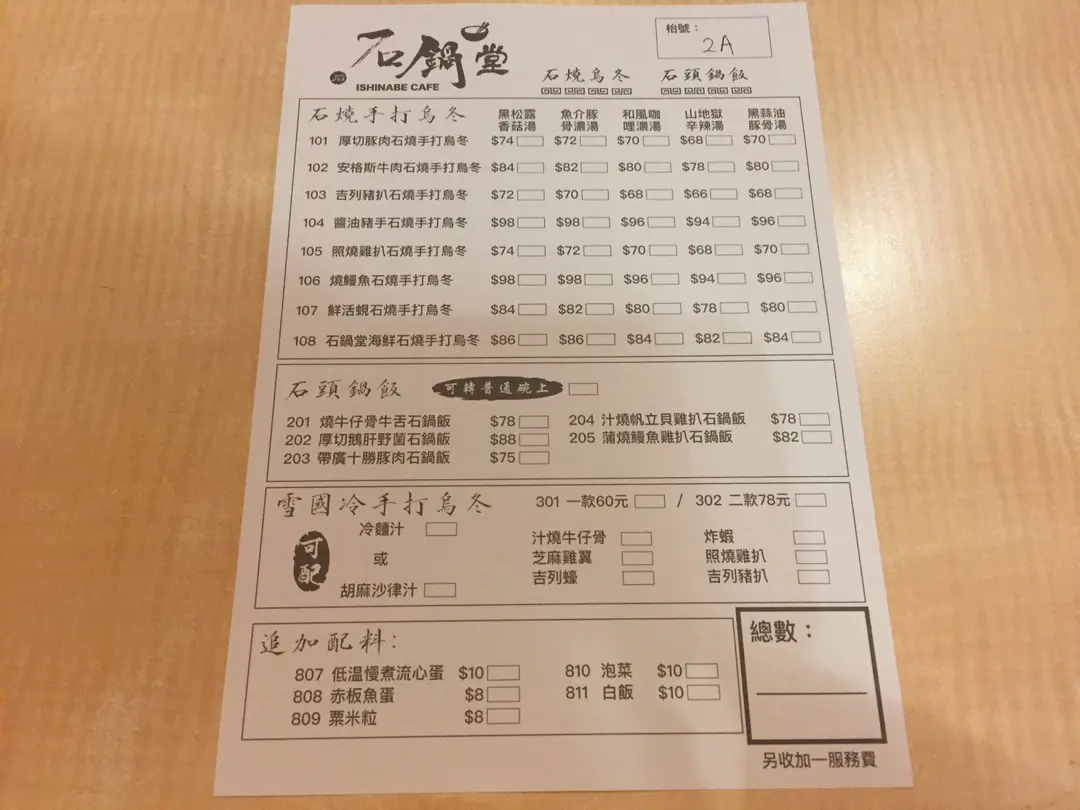 石鍋堂
石
ISHINABE CAFE
枱號：
2A
石燒烏冬 石頭鍋飯
石燒手打烏冬 黑松露香菇湯 魚介豚骨濃湯 和風咖哩濃湯 山地獄辛辣湯 黑蒜油豚骨湯
101 厚切豚肉石燒手打烏冬 $74 $72 $70 $68 $70
102 安格斯牛肉石燒手打烏冬 $84 $82 $80 $78 $80
103 吉列豬扒石燒手打烏冬 $72 $70 $68 $66 $68
104 醬油豬手石燒手打烏冬 $98 $98 $96 $94 $96
105 照燒雞扒石燒手打烏冬 $74 $72 $70 $68 $70
106 燒鰻魚石燒手打烏冬 $98 $98 $96 $94 $96
107 鮮活蜆石燒手打烏冬 $84 $82 $80 $78 $80
108 石鍋堂海鮮石燒手打烏冬 $86 $86 $84 $82 $84
石頭鍋飯 可轉普通碗上
201 燒牛仔骨牛舌石鍋飯 $78 204 汁燒帆立貝雞扒石鍋飯 $78
202 厚切鵝肝野菌石鍋飯 $88 205 蒲燒鰻魚雞扒石鍋飯 $82
203 帶廣十勝豚肉石鍋飯 $75
雪國冷手打烏冬 301 一款60元 / 302 二款78元
可配
冷麵汁
或
胡麻沙律汁
汁燒牛仔骨 炸蝦
芝麻雞翼 照燒雞扒
吉列蠔 吉列豬扒
追加配料:
807 低溫慢煮流心蛋 $10 810 泡菜 $10
808 赤板魚蛋 $8 811 白飯 $10
809 粟米粒 $8
總數：
另收加一服務費